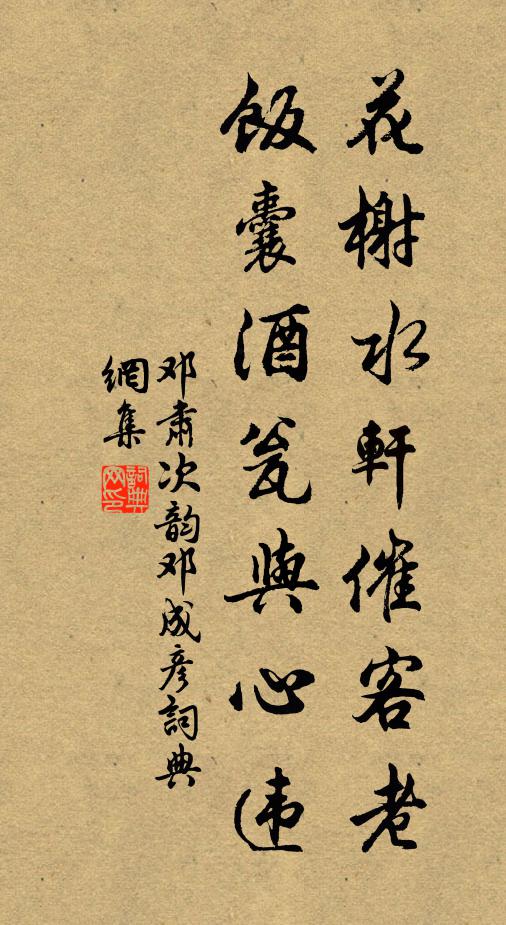 花榭水軒催客老
飯囊酒瓮與心违
邓肃次韵邓成彦詞典
網集
詞典
网印